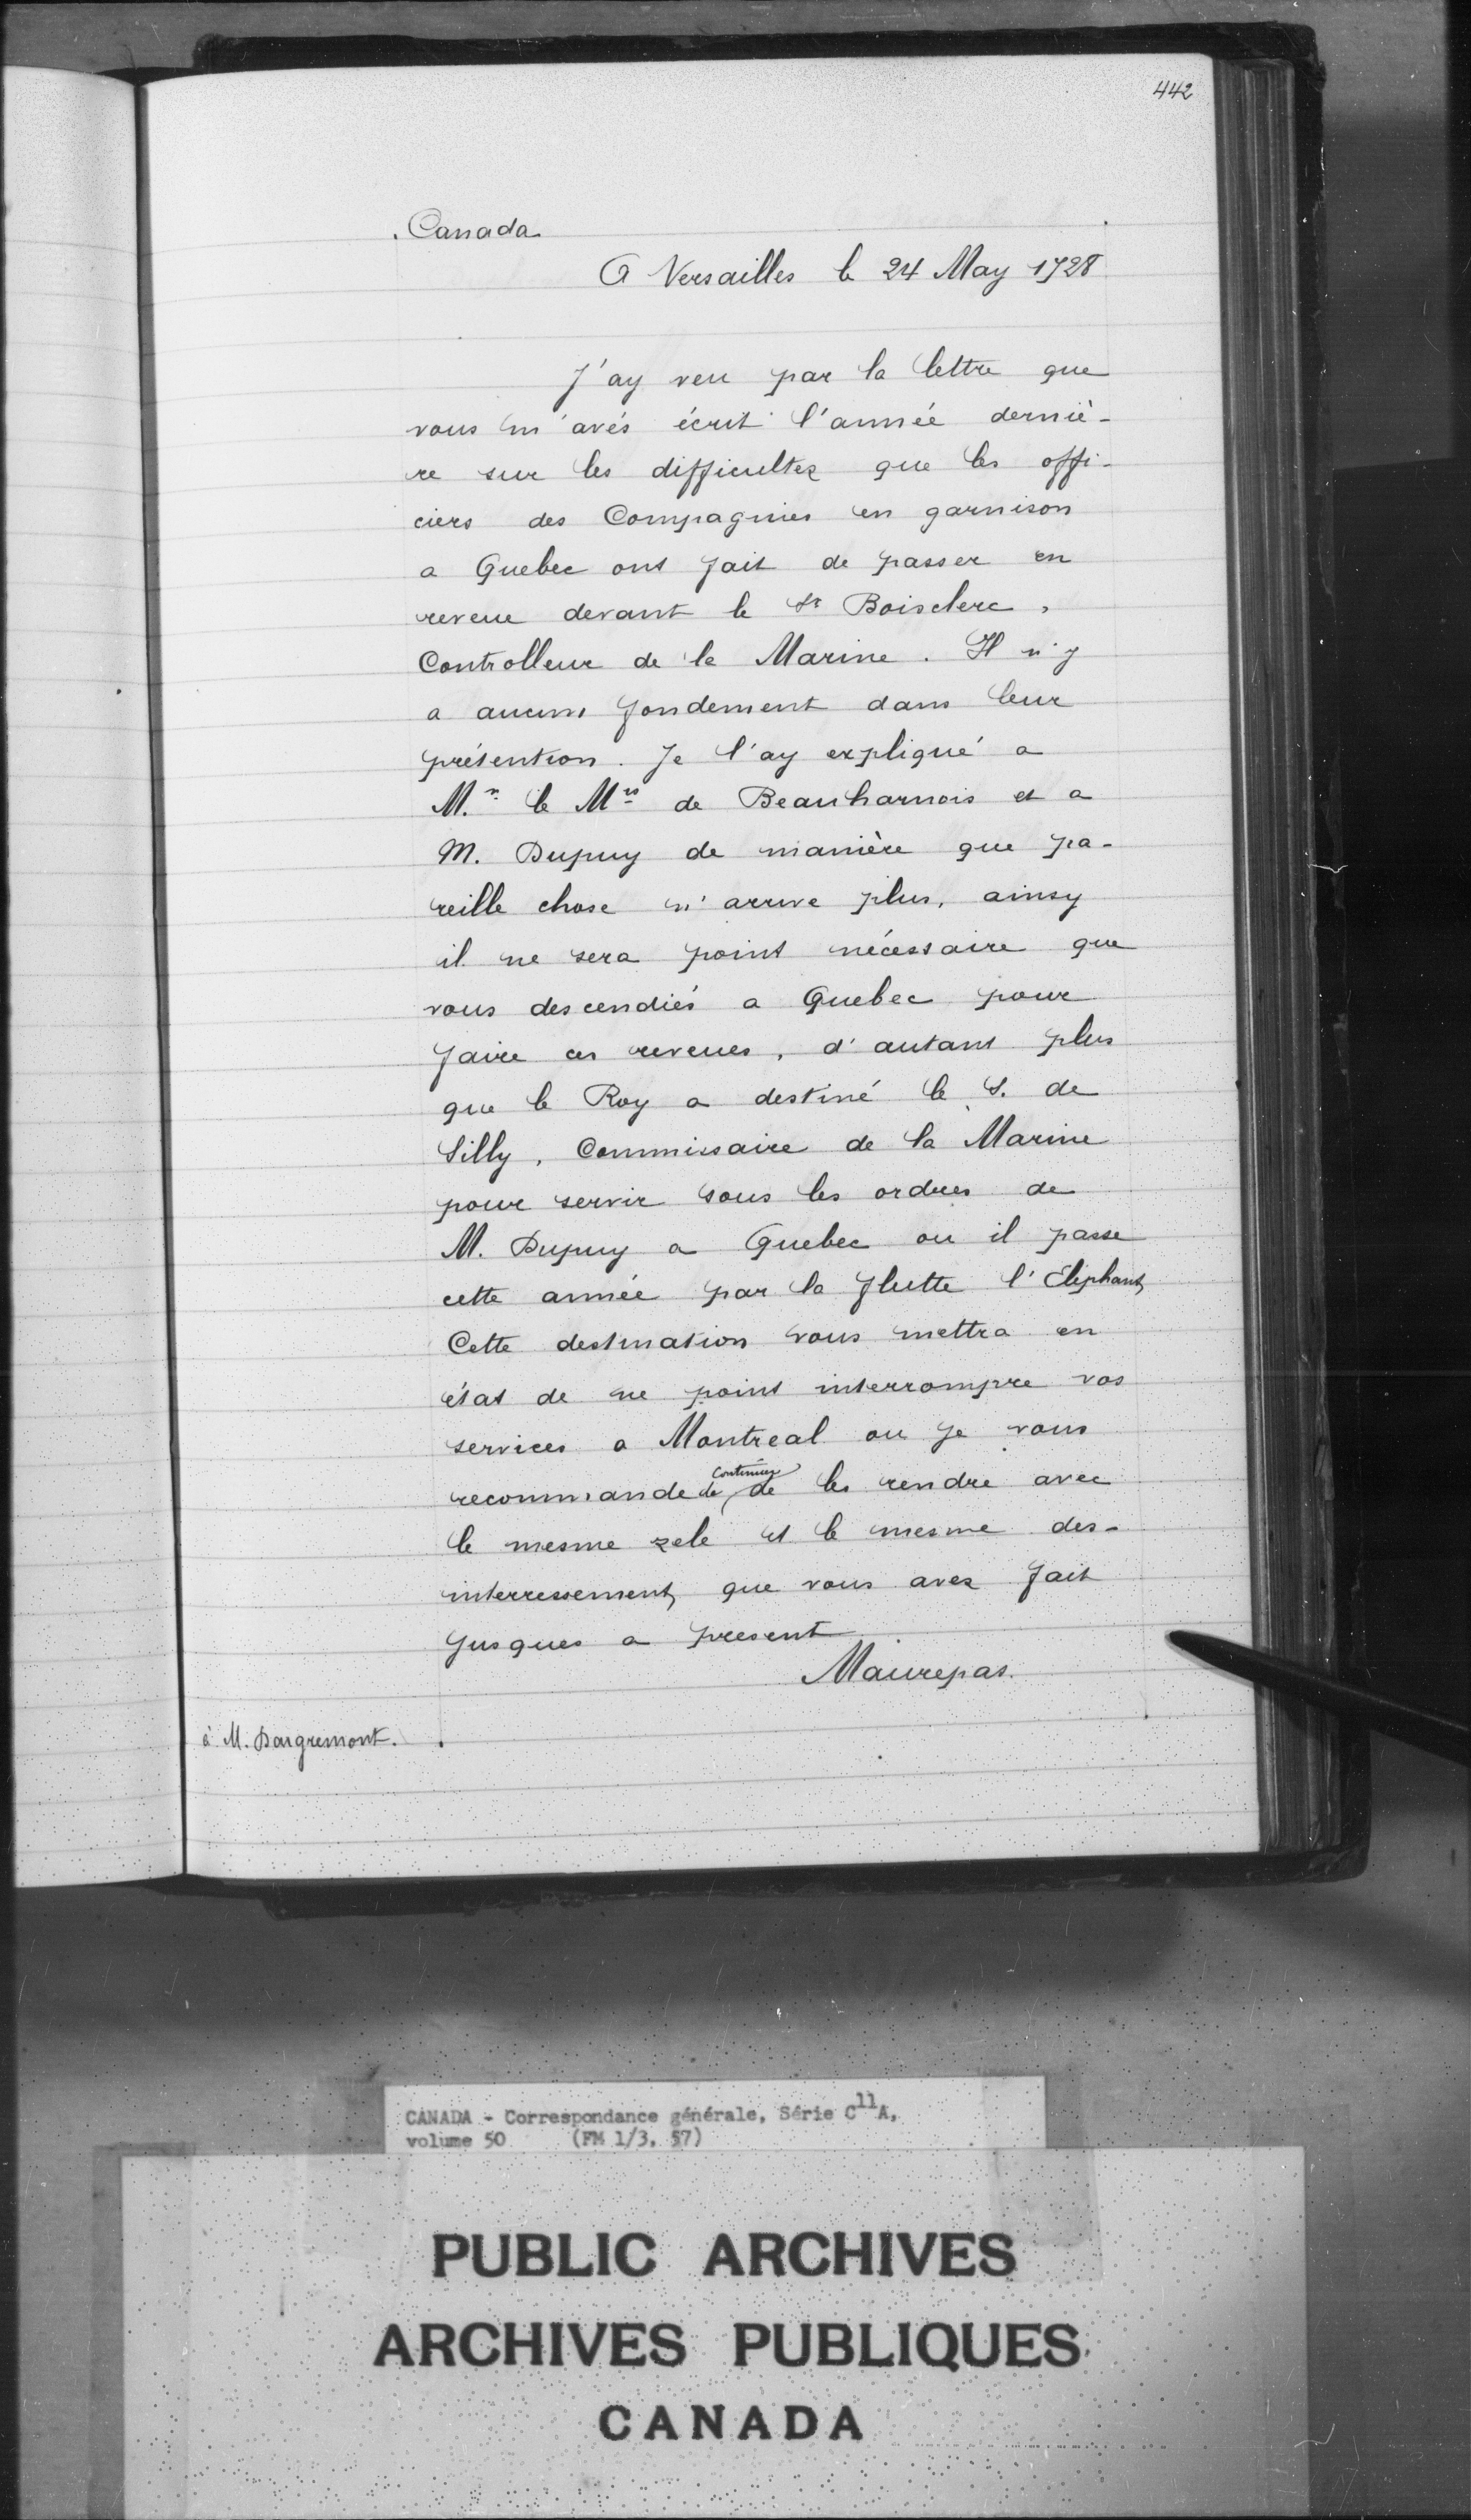 442
Canada
A Versailles le 24 May 1728
J'ay veu par la lettre que
vous m'avés écrit l'année derniè-
re sur les difficultez que les offi-
ciers des Compagnies en garnison
a Quebec ont fait de passer en
reveue devant le Sr Boisclerc,
Controlleur de la Marine. Il n'y
a aucun fondement dans leur
prétention. Je l'ay expliqué a
M.r le Mis de Beauharnois et a
M. Dupuy de manière que pa-
reille chose n'arrive plus, ainsy
il ne sera point nécessaire que
vous descendiés a Quebec pour
faire ces reveues, d'autant plus
que le Roy a destiné le S. de
Silly, Commissaire de la Marine
pour servir sous les ordres de
M. Dupuy a Quebec ou il passe
cette année par la flutte l'Elephant,
Cette destination vous mettra en
état de ne point interrompre vos
services a Montreal ou je vous
recommande de continuer de les rendre avec
le mesme zele et le mesme des-
interressement, que vous avez fait
jusques a present.
Maurepas.
à M. Daigremont.
CANADA - Correspondance générale, Série C11A,
volume 50 (FM 1/3, 57)
PUBLIC ARCHIVES
ARCHIVES PUBLIQUES
CANADA